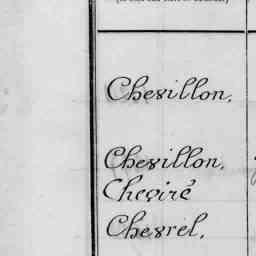 Chevillon,
Chevillon,
Cheviré
Chevrel,